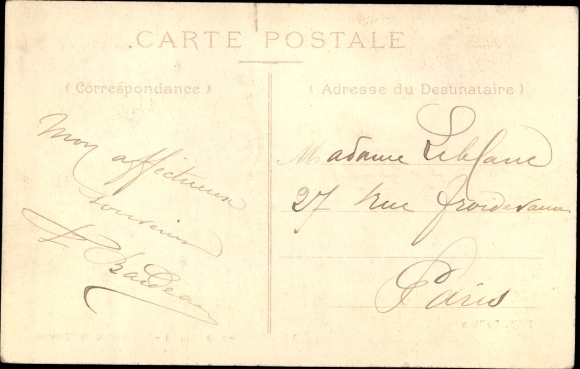 CARTE POSTALE
(Correspondance)
Mon affectueux
souvenir
(Adresse du Destinataire)
Madame Leblanc
27 Rue Froidevaux
Paris